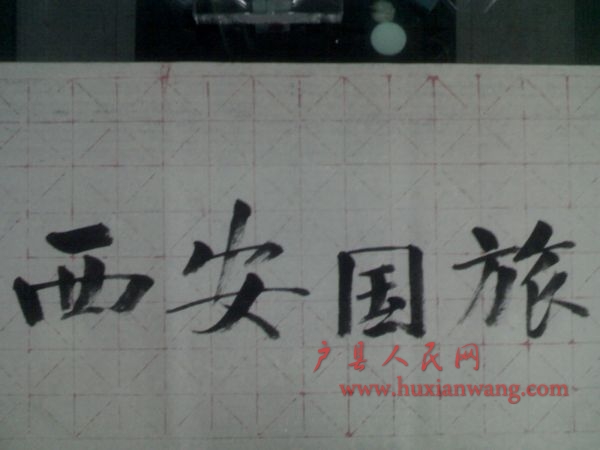 西安国旅
户县人民网
www.huxianwang.com